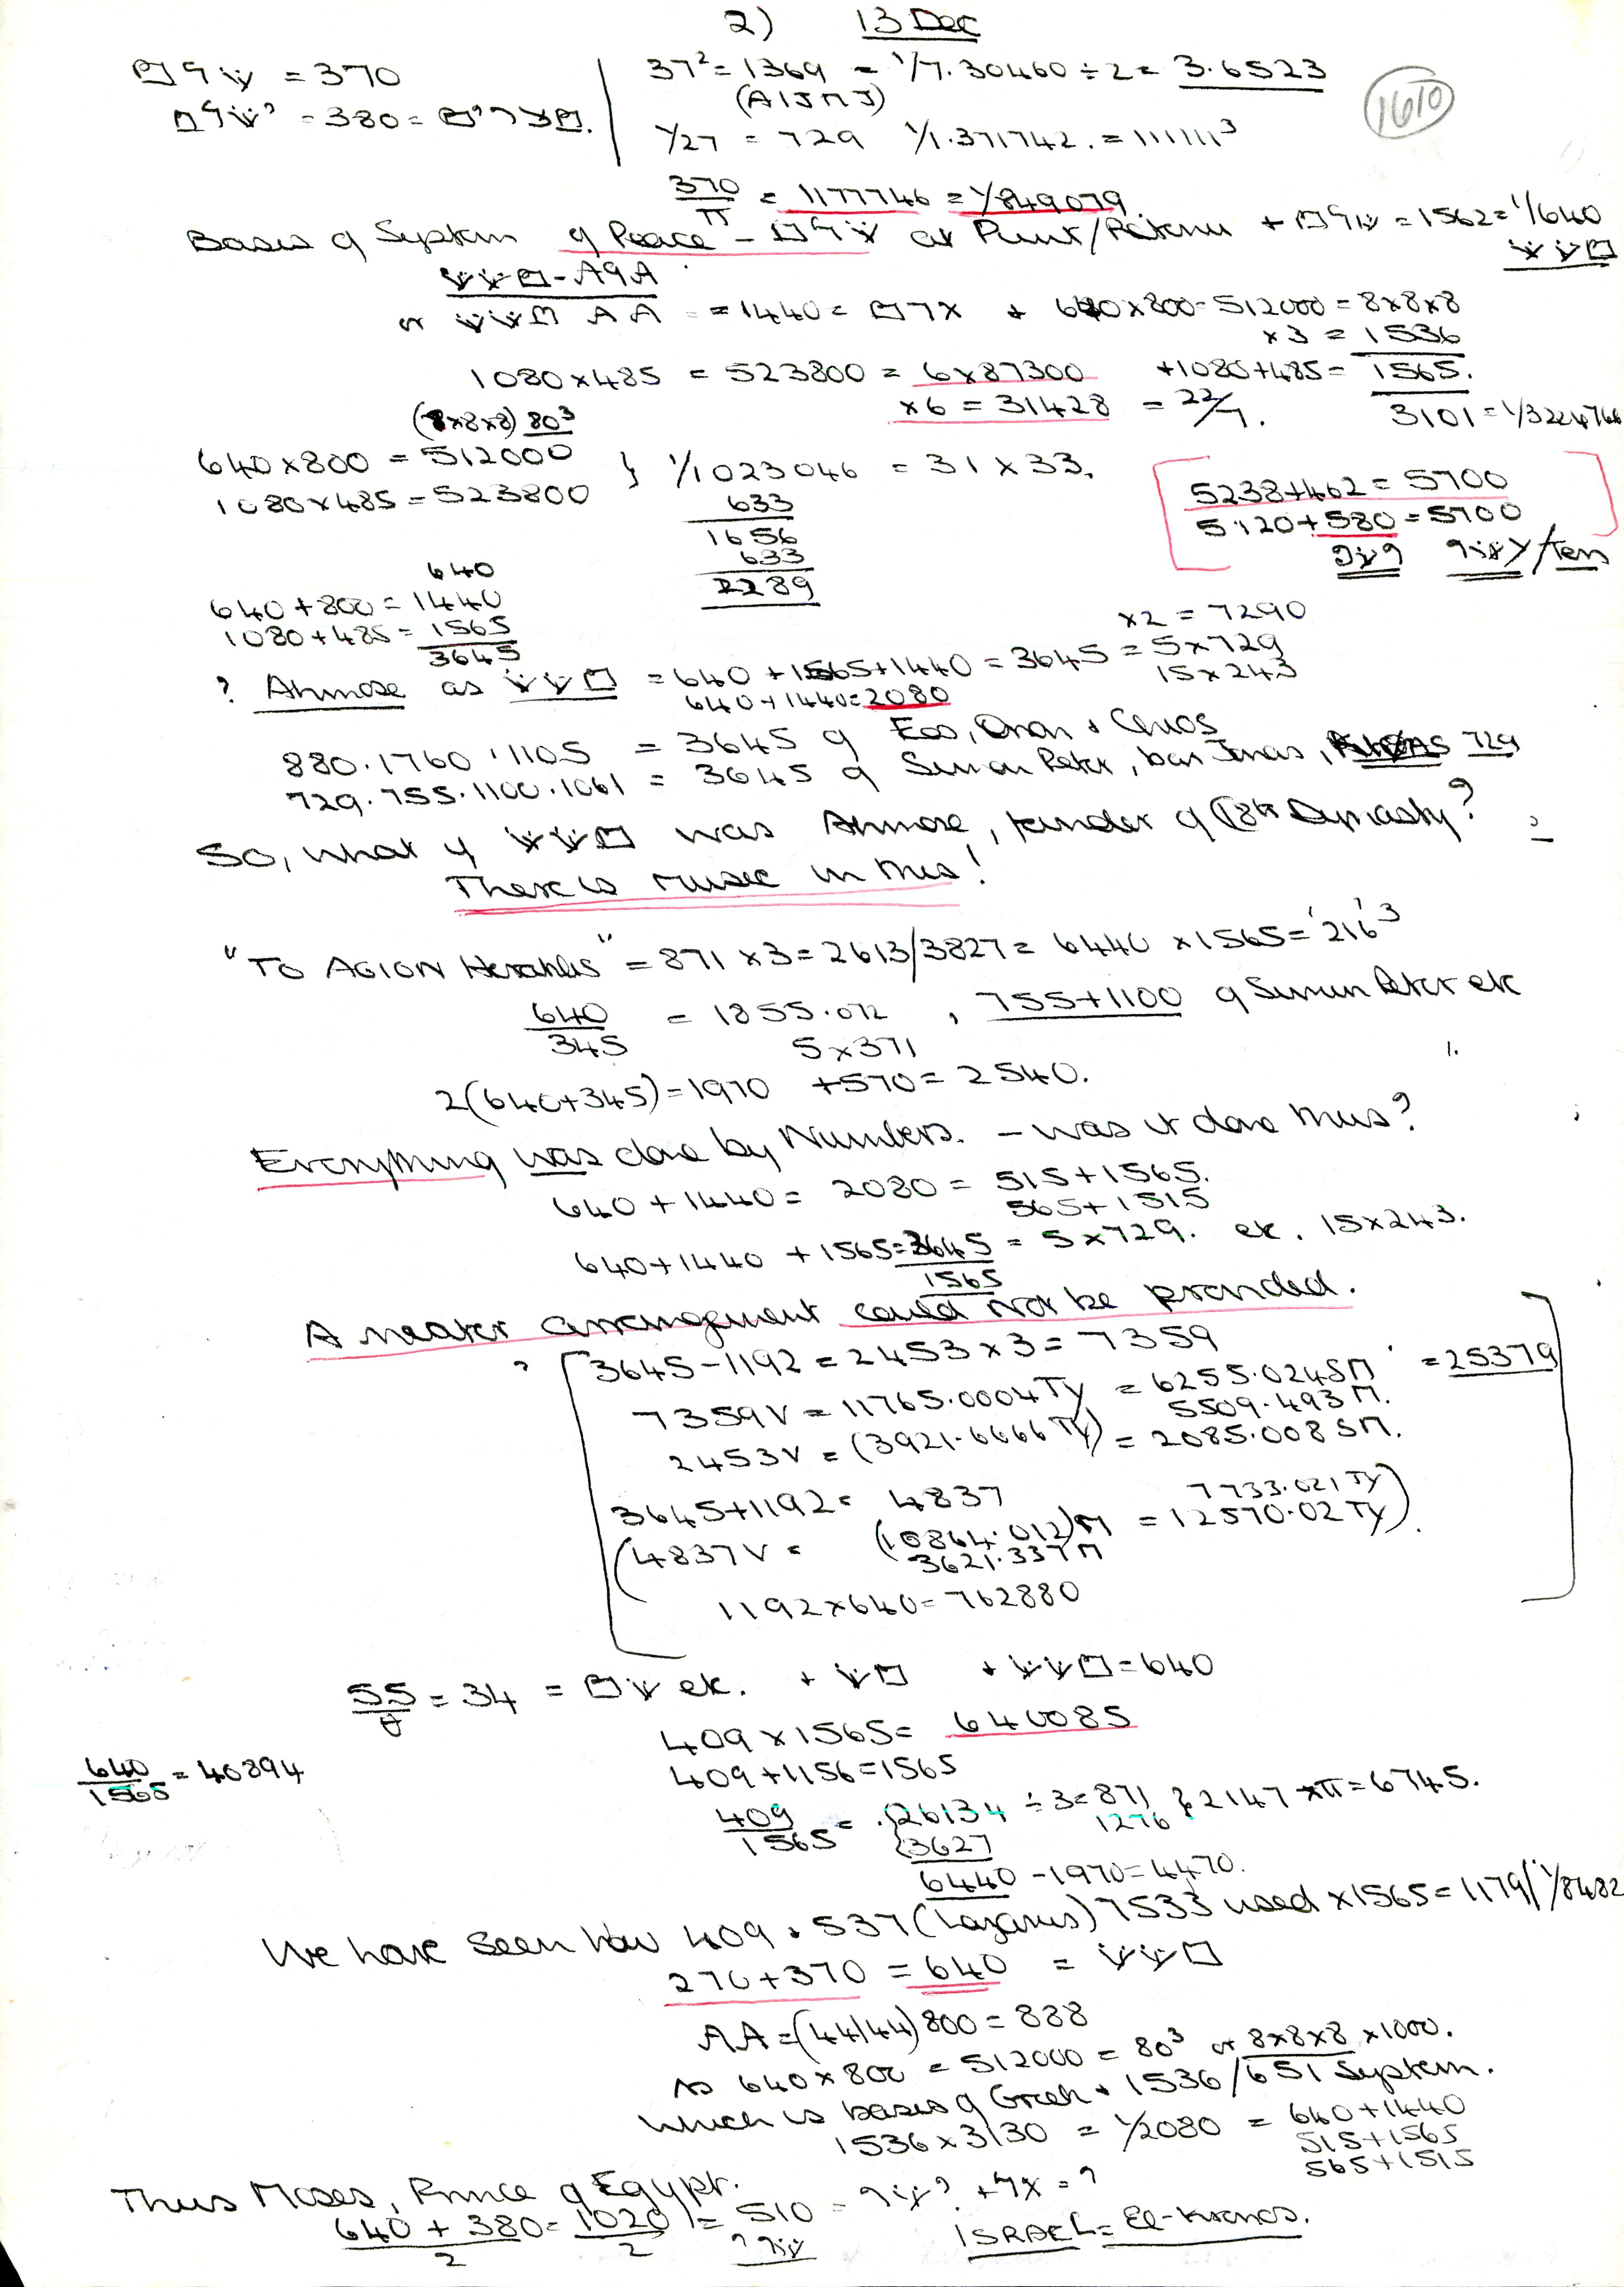 2) 13 Dec
= 370
= 380 =
37² = 1369 = 1/7.30460 ÷ 2 = 3.6523
(A I J M J)
1610
1/27 = 729 1/1.371742. = 111111³
370/π = 1177746 = 1/849079.
Bases of System of Peace - at Punt/Retenu + = 1562 = 1/640
- A9A
or A A = 1440 = + 640 x 800 = 512000 = 8x8x8
x 3 = 1536
1080 x 485 = 523800 = 6 x 87300 + 1080 + 485 = 1565.
x 6 = 31428 = 22/7. 3101 = 1/3224766
(8x8x8) 80³
640 x 800 = 512000 } 1/1023046 = 31 x 33.
1080 x 485 = 523800
633
1656
633
2289
5238 + 462 = 5700
5120 + 580 = 5700
/Ten
640
640 + 800 = 1440
1080 + 485 = 1565
3645
x 2 = 7290
? Ahmose as = 640 + 1565 + 1440 = 3645 = 5 x 729
15 x 243
640 + 1440 = 2080
880 . 1760 . 1105 = 3645 of Eos, Orion &
729 . 755 . 1100 . 1061 = 3645 of Simon Peter, bar Jonas, 729
So, what if was Ahmose, founder of 18th Dynasty?
There is music in this!
"TO AGION Herakles" = 871 x 3 = 2613/3827 = 6440 x 1565 = '216'³
640/345 = 1855.072 , 755 + 1100 of Simon Peter etc
5 x 371
2(640+345) = 1970 + 570 = 2540.
Everything was done by Numbers. - was it done thus?
640 + 1440 = 2080 = 515 + 1565.
565 + 1515
640 + 1440 + 1565 = 3645 = 5 x 729. etc. 15 x 243.
1565
A neater arrangement could not be provided.
? [ 3645 - 1192 = 2453 x 3 = 7359
7359V = 11765.0004 Ty = 6255.024 SM = 25379
5509.493 M.
2453V = (3921.6666 Ty) = 2085.008 SM.
3645 + 1192 = 4837 7733.021 Ty
(4837V = (10864.012) M = 12570.02 Ty)
3621.337 M
1192 x 640 = 762880
55/θ = 34 = etc. + + = 640
409 x 1565 = 640085
640/1565 = 40894
409 + 1156 = 1565
409/1565 = .{26134 ÷ 3 = 871 } 2147 x π = 6745.
{3627 1276
6440 - 1970 = 4470.
We have seen how 409 + 537 (Lazarus) 7533 used x 1565 = 1179/1/8482
270 + 370 = 640 =
AA = (44/44) 800 = 888
As 640 x 800 = 512000 = 80³ or 8x8x8 x 1000.
which is bases of Greek + 1536/651 System.
1536 x 3130 = 1/2080 = 640 + 1440
515 + 1565
565 + 1515
Thus Moses, Prince of Egypt.
640 + 380/2 = 1020/2 = 510 =
ISRAEL = El-Kronos.